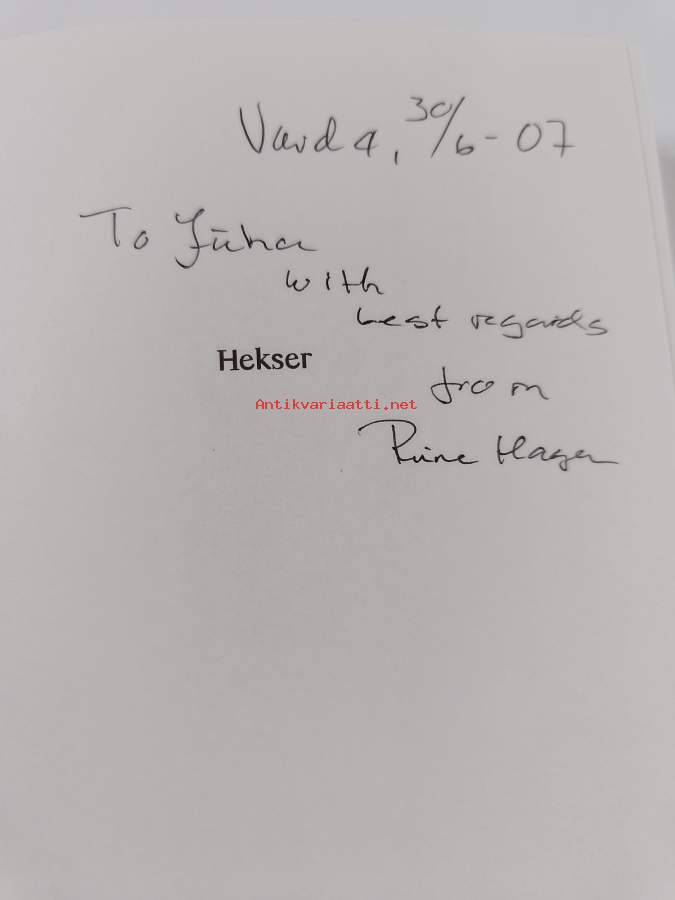 Vardø, 30/6-07
To Juha
with
best regards
Hekser
from
Antikvariaatti.net
Rune Hagen